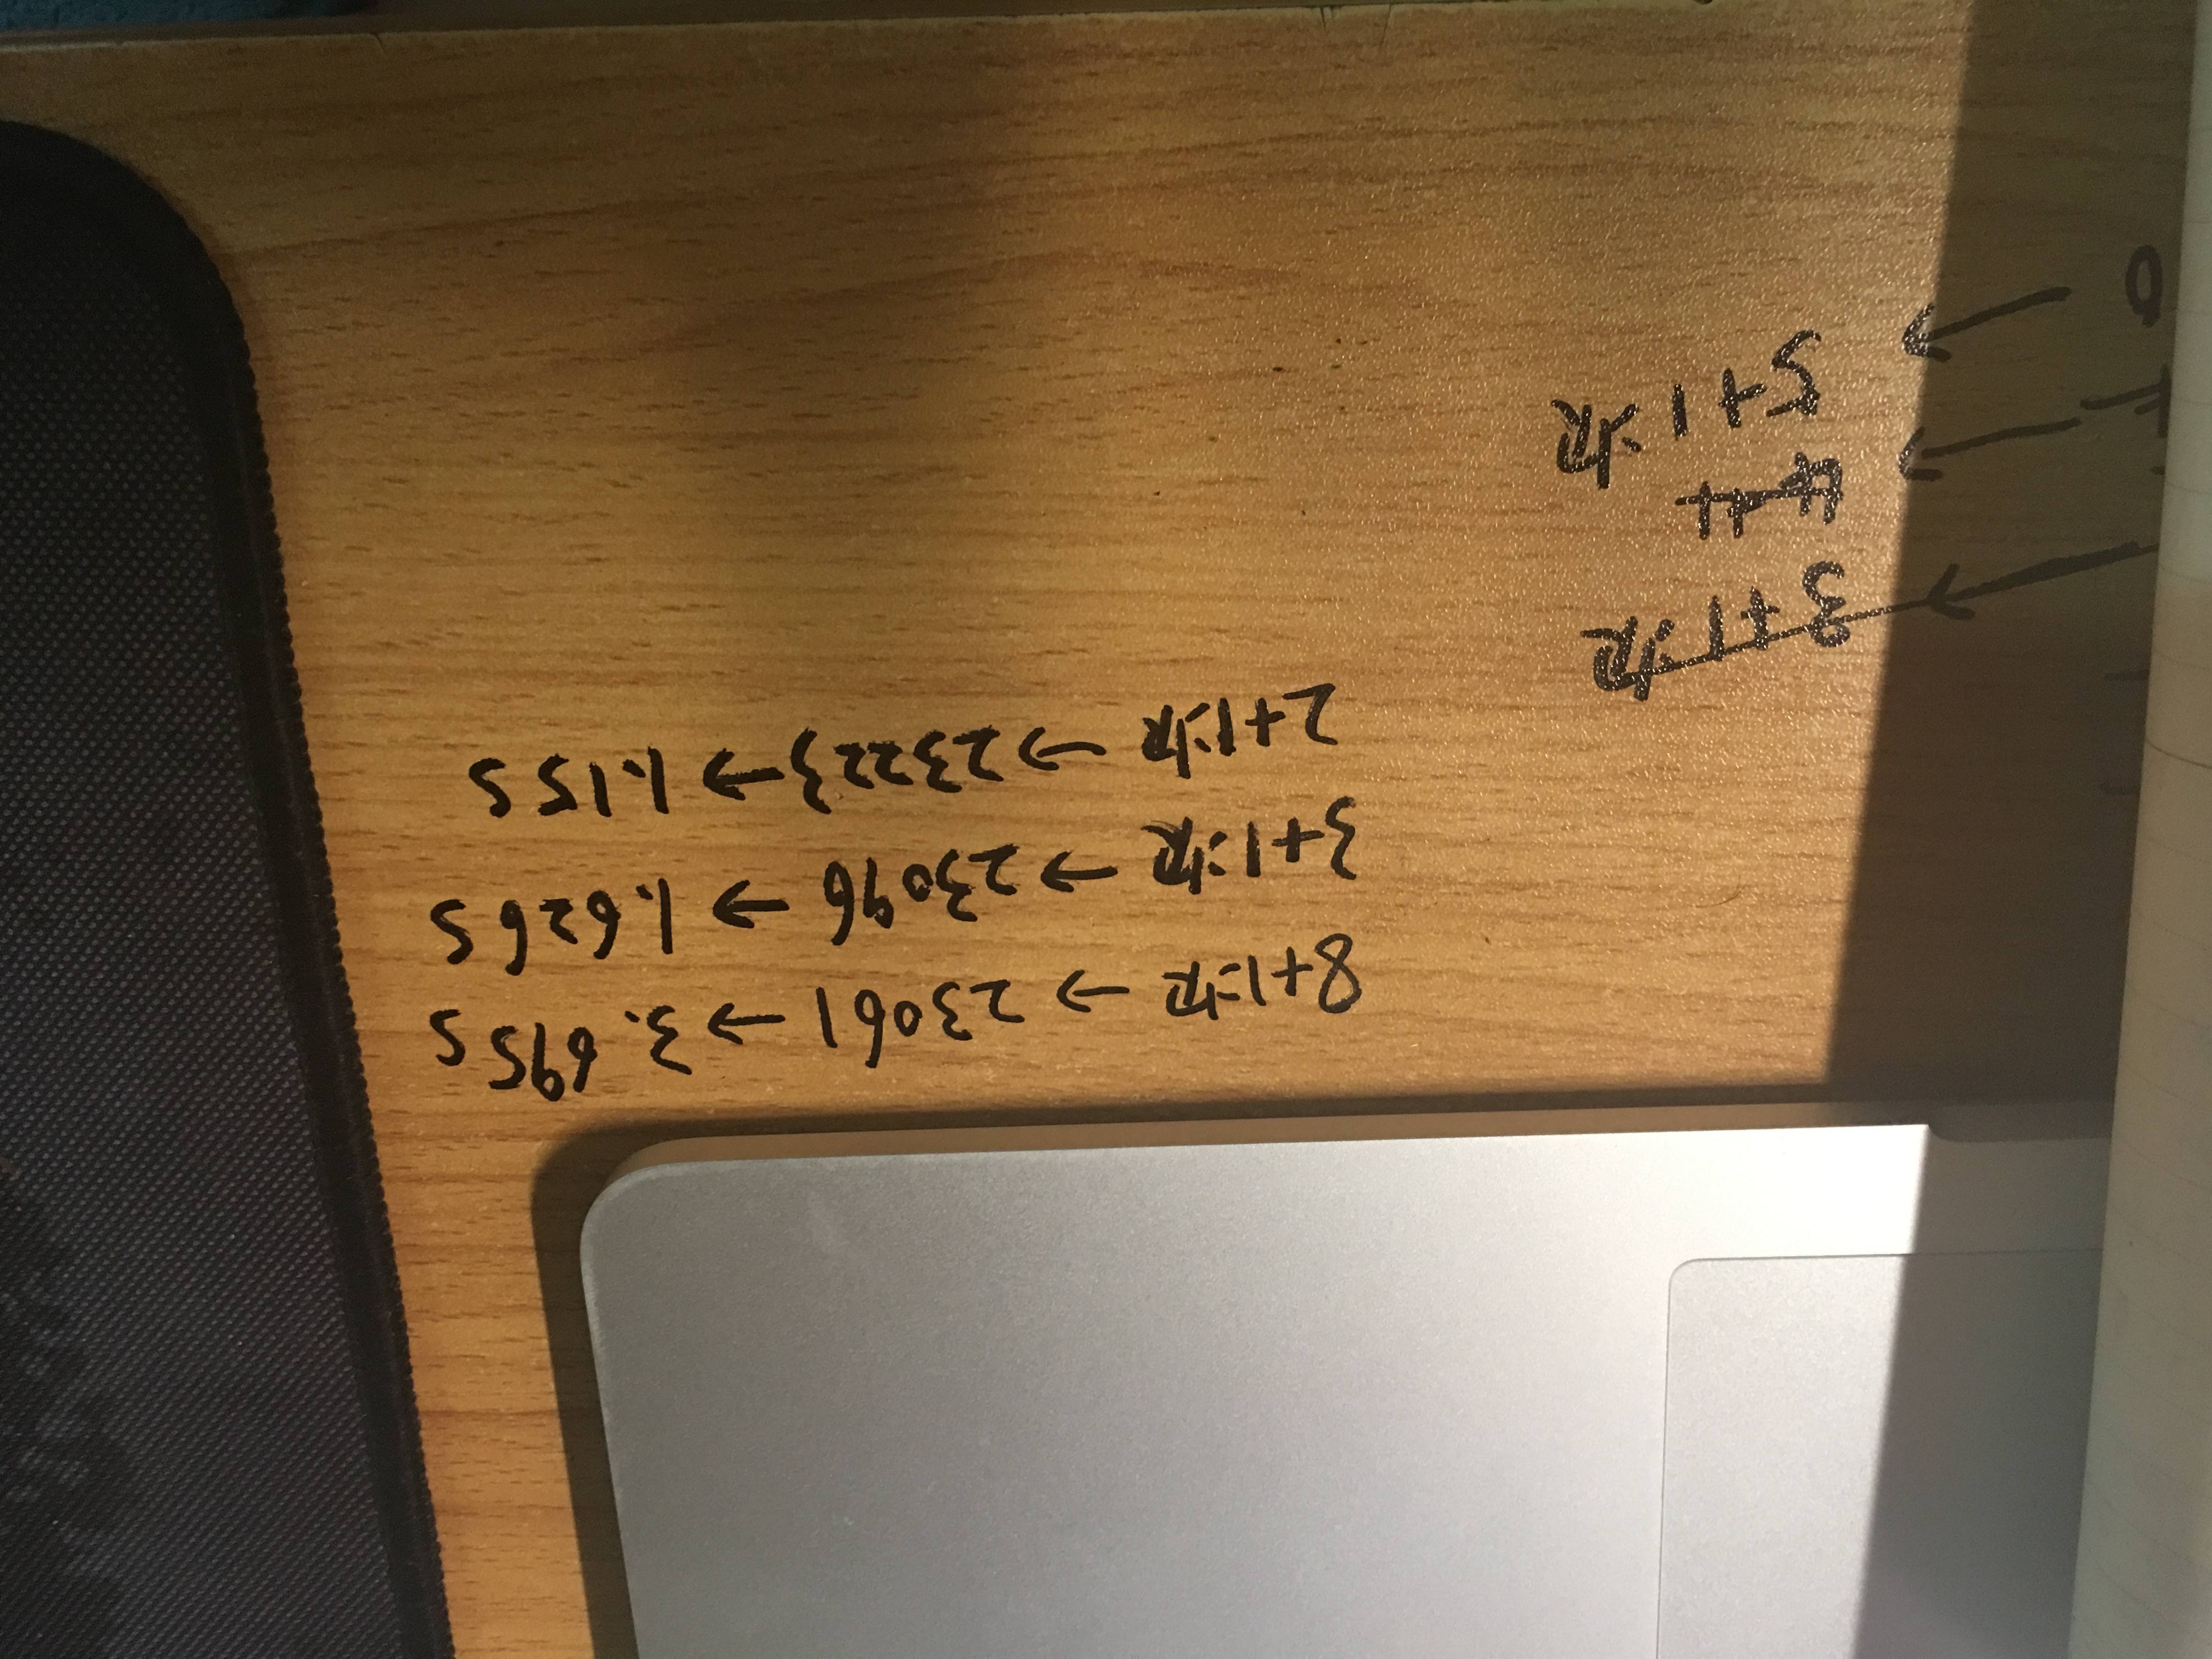 8+1次 → 23061 → 3.695s
3+1次 → 23096 → 1.626s
2+1次 → 23223 → 1.15s
3+1次
5+1次